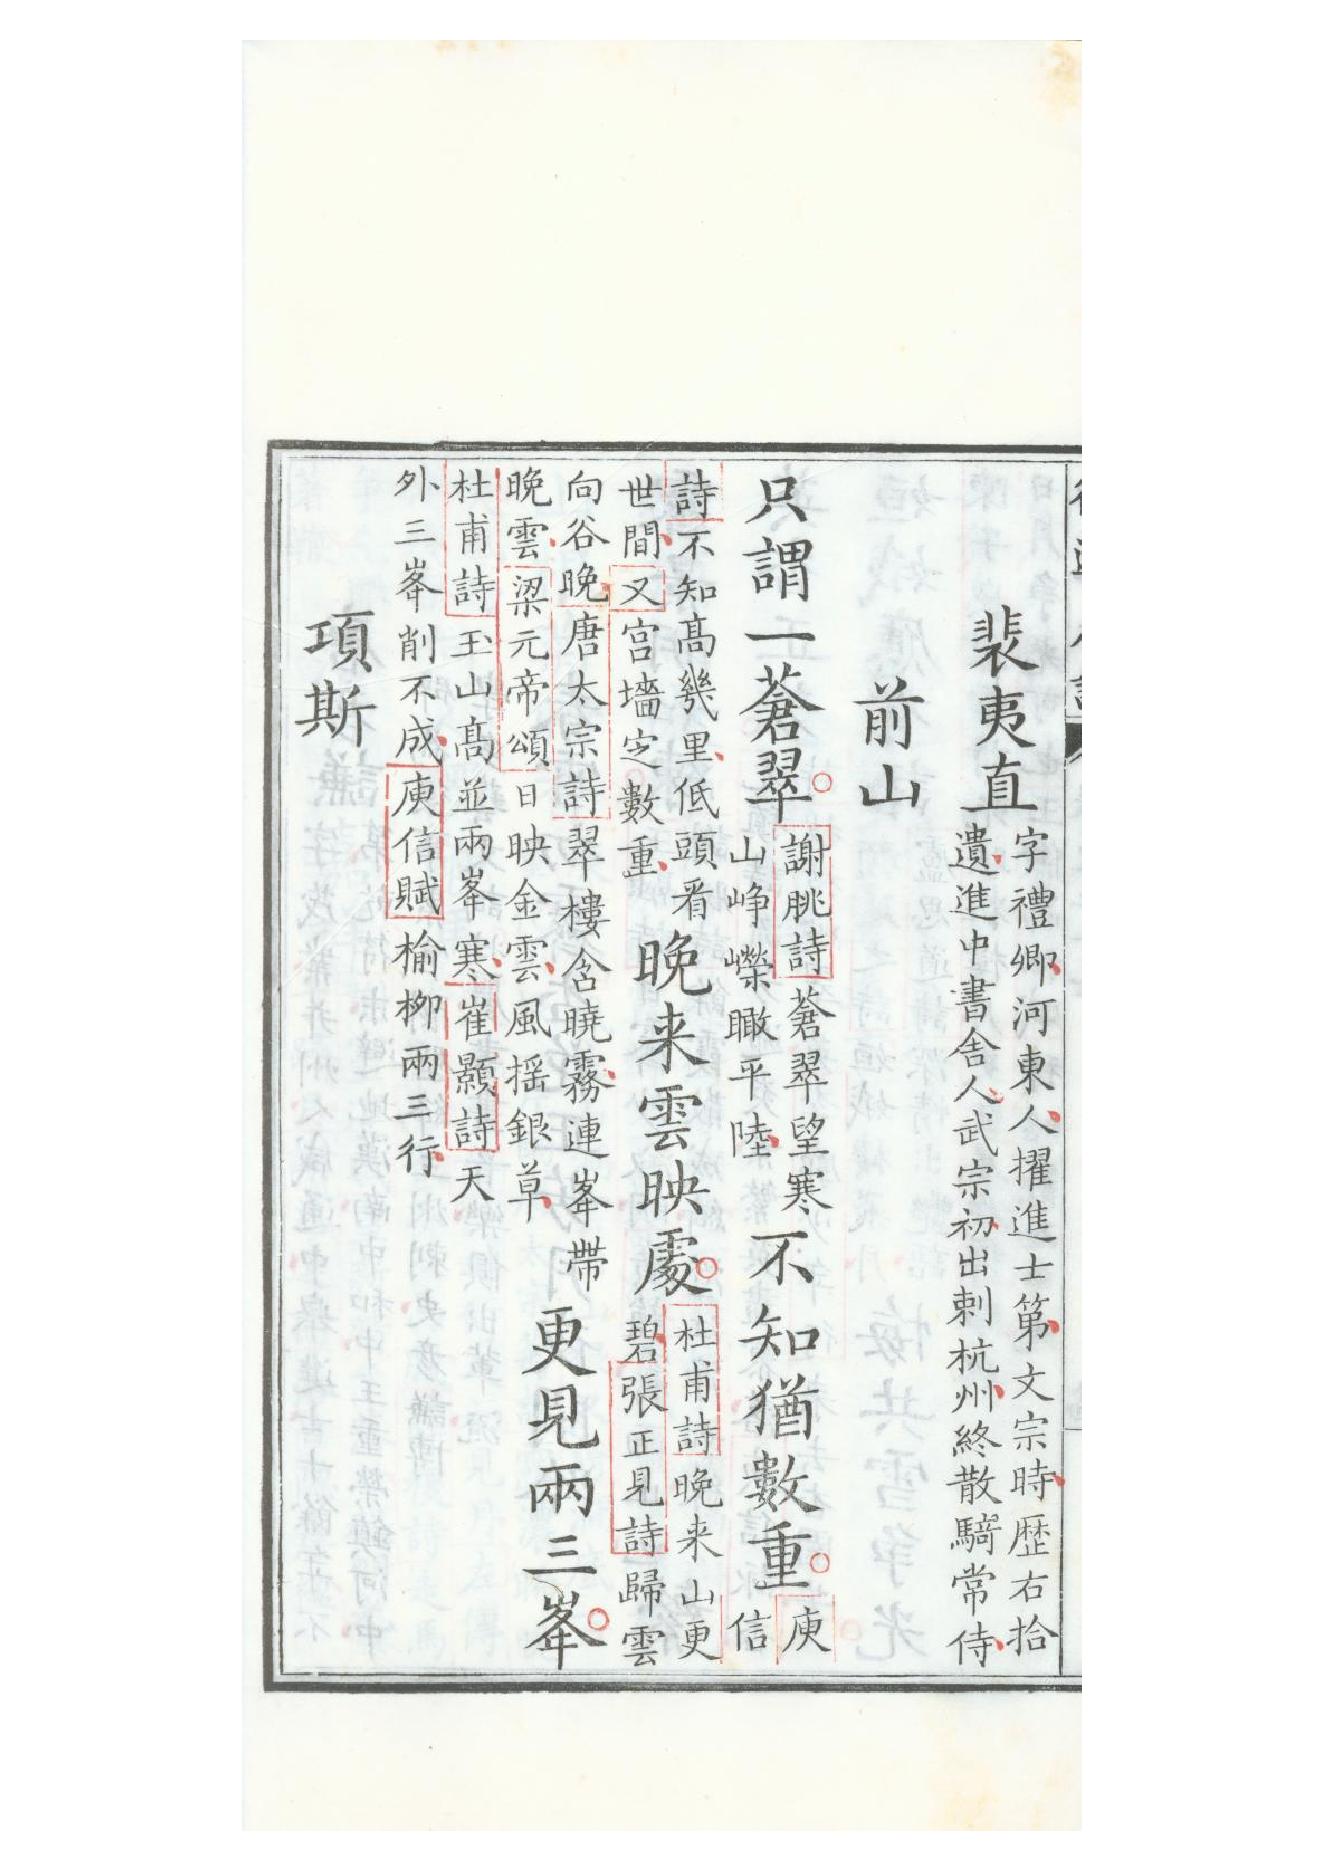 裴夷直
字禮卿河東人擢進士第文宗時歴右拾
遺進中書舍人武宗初出刺杭州終散騎常侍
前山
只謂一蒼翠
謝朓詩蒼翠望寒
山崢嶸瞰平陸
不知猶數重
庾
信
詩不知高幾里低頭看
世間又宫墻定數重
晚来雲映處
杜甫詩晚来山更
碧張正見詩歸雲
向谷晚唐太宗詩翠樓含曉霧連峯帶
晚雲梁元帝頌日映金雲風揺銀草
更見兩三峯
杜甫詩玉山高並兩峯寒崔顥詩天
外三峯削不成庾信賦榆柳兩三行
項斯